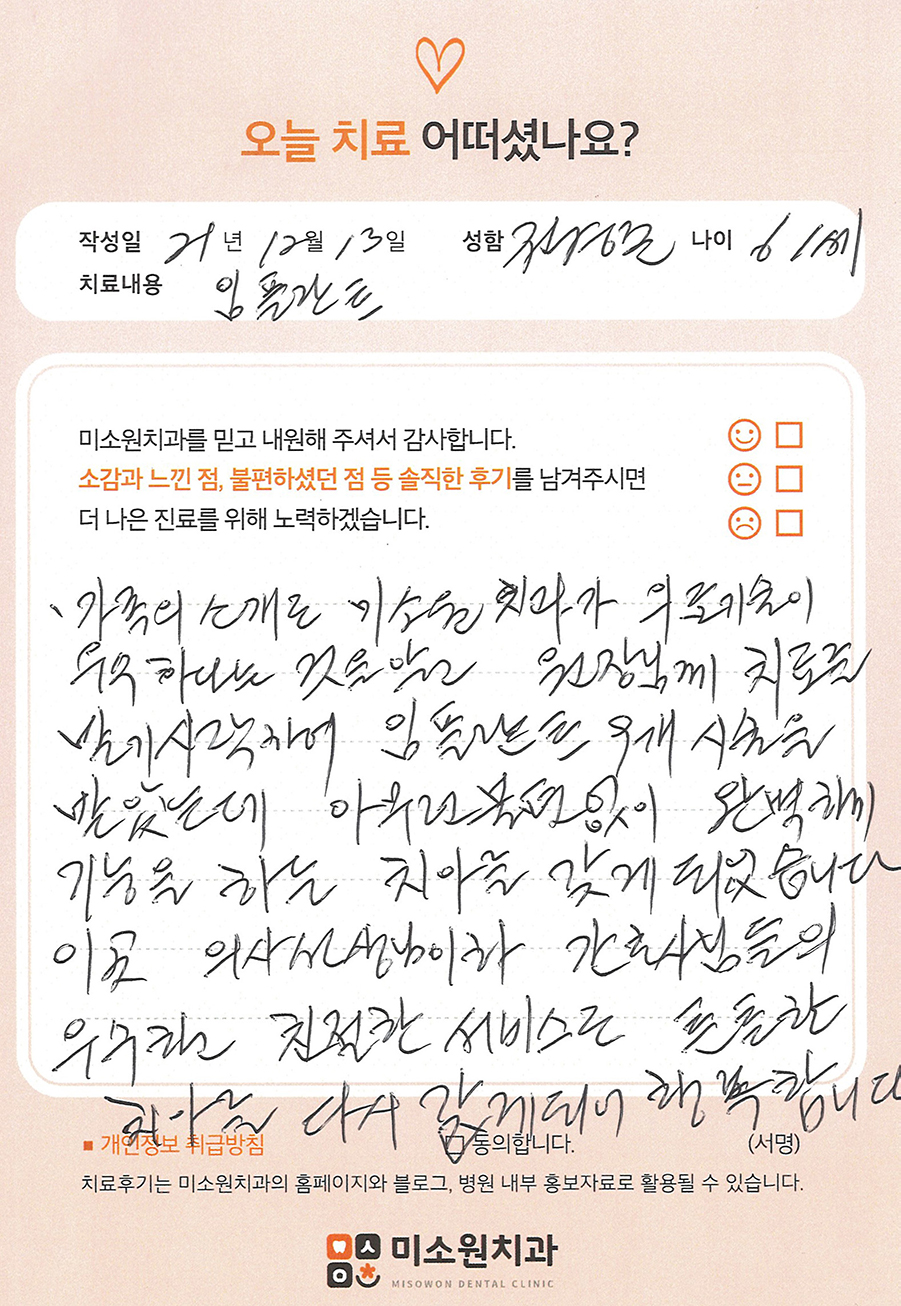 오늘 치료 어떠셨나요?
작성일 21년 12월 13일 성함 나이 61세
치료내용 임플란트
미소원치과를 믿고 내원해 주셔서 감사합니다.
소감과 느낀 점, 불편하셨던 점 등 솔직한 후기를 남겨주시면
더 나은 진료를 위해 노력하겠습니다.
가족의 소개로 미소원 치과가 의료기술이
우수하다는 것을 알고 원장님께 치료를
받기 시작하여 임플란트 시술을
받았는데 아무런 불편없이 완벽하게
기능을 하는 치아를 갖게 되었습니다
이곳 의사선생님이하 간호사님들의
우수하고 친절한 서비스로 튼튼한
치아를 다시 갖게되어 행복합니다
■ 개인정보 취급방침 □ 동의합니다. (서명)
치료후기는 미소원치과의 홈페이지와 블로그, 병원 내부 홍보자료로 활용될 수 있습니다.
미소원치과
MISOWON DENTAL CLINIC